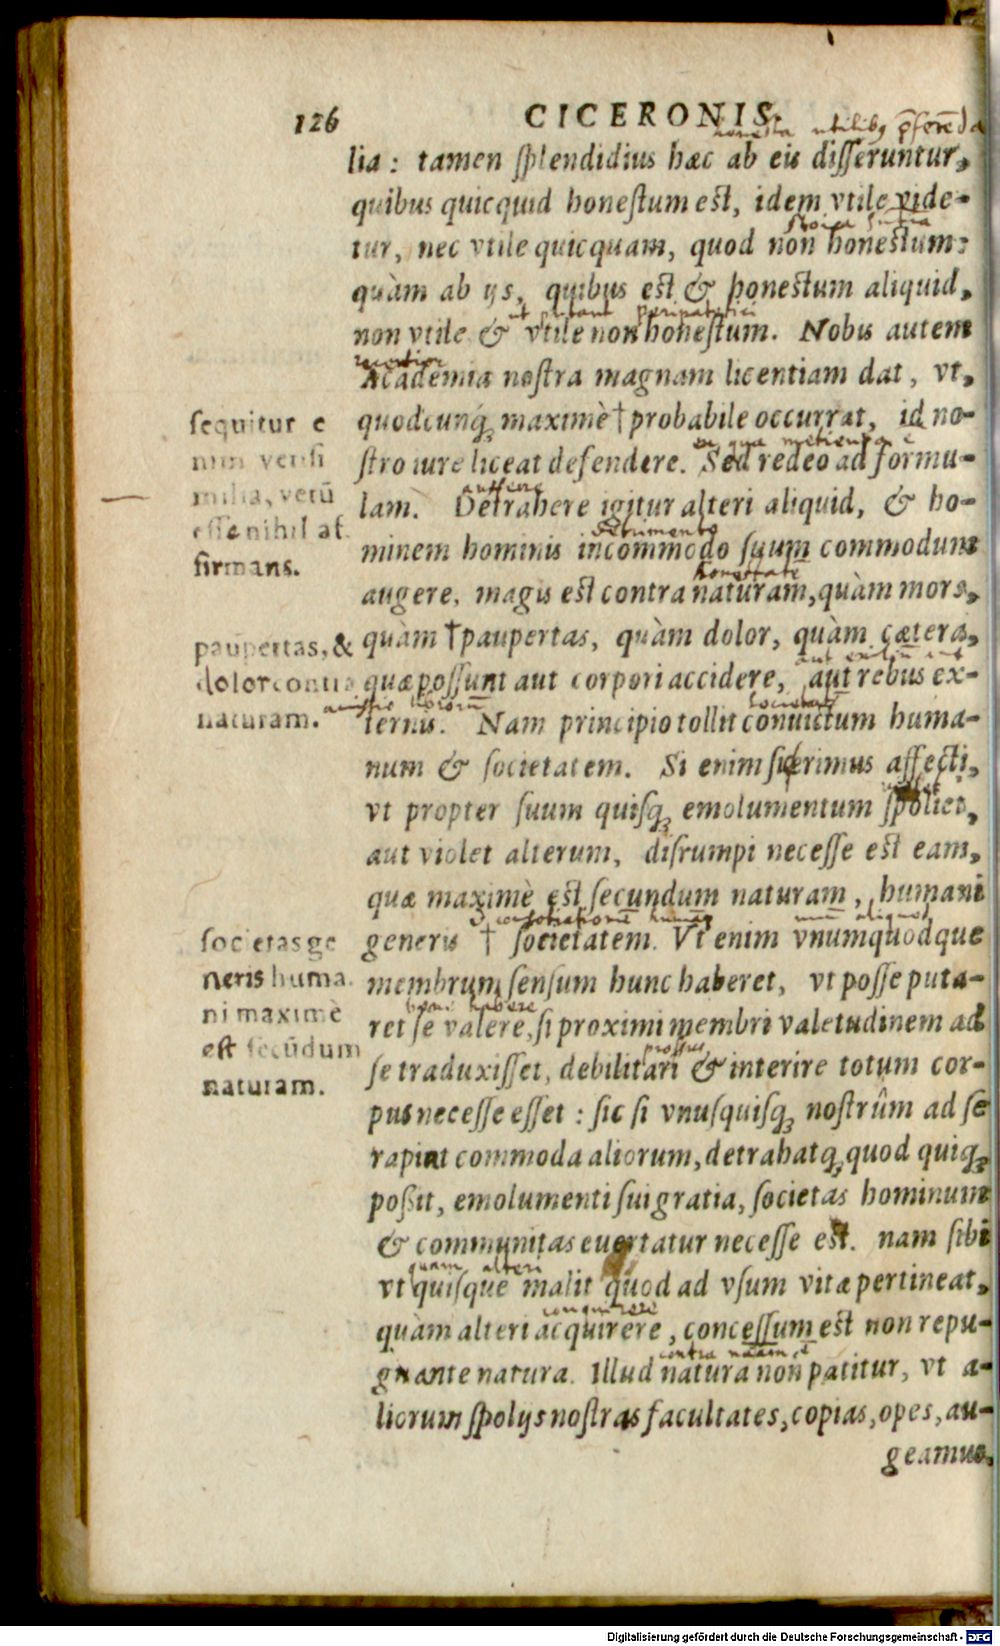 126
CICERONIS.
honesta utilibꝫ p̄ferēda
lia : tamen ſplendidius hæc ab eis diſſeruntur,
quibus quicquid honeſtum est, idem vtile vide-
tur, nec vtile quicquam, quod non honestum:
quàm ab ijs, quibus est & honestum aliquid,
ut putant peripatetici
non vtile & vtile non honeſtum. Nobis autem
recentior
Academia noſtra magnam licentiam dat, vt,
quodcunq́ꝫ maximè † probabile occurrat, id no-
ſtro iure liceat defendere. Sed redeo ad formu-
auferre
lam. Detrahere igitur alteri aliquid, & ho-
detrimento
minem hominis incommodo ſuum commodum
honestatē
augere, magis est contra naturam, quàm mors,
quàm † paupertas, quàm dolor, quàm cætera,
quæ poſſunt aut corpori accidere, aut rebus ex-
ternis. Nam principio tollit conuictum huma-
num & ſocietatem. Si enim ſic erimus affecti,
vt propter ſuum quiſqꝫ emolumentum ſpoliet,
aut violet alterum, diſrumpi neceſſe est eam,
quæ maximè est ſecundum naturam, humani
generis † ſocietatem. Vt enim vnumquodque
membrum ſenſum hunc haberet, vt poſſe puta-
bene habere
ret ſe valere, ſi proximi membri valetudinem ad
prorsus
ſe traduxiſſet, debilitari & interire totum cor-
pus neceſſe eſſet : ſic ſi vnuſquiſqꝫ noſtrûm ad ſe
rapiat commoda aliorum, detrahatqꝫ quod quiqꝫ
poßit, emolumenti ſui gratia, ſocietas hominum
& communitas euertatur neceſſe est. nam ſibi
quam alteri
vt quiſque malit quod ad vſum vitæ pertineat,
conquirere
quàm alteri acquirere, conceſſum est non repu-
contra naām ē
gnante natura. Illud natura non patitur, vt a-
liorum ſpolijs noſtras facultates, copias, opes, au-
geamus.
ſequitur e
nim veriſi
milia, verū
eſſe nihil af.
firmans.
paupertas, &
dolor contra
naturam.
ſocietas ge
neris huma.
ni maximè
eſt ſecūdum
naturam.
Digitalisierung gefördert durch die Deutsche Forschungsgemeinschaft - DFG